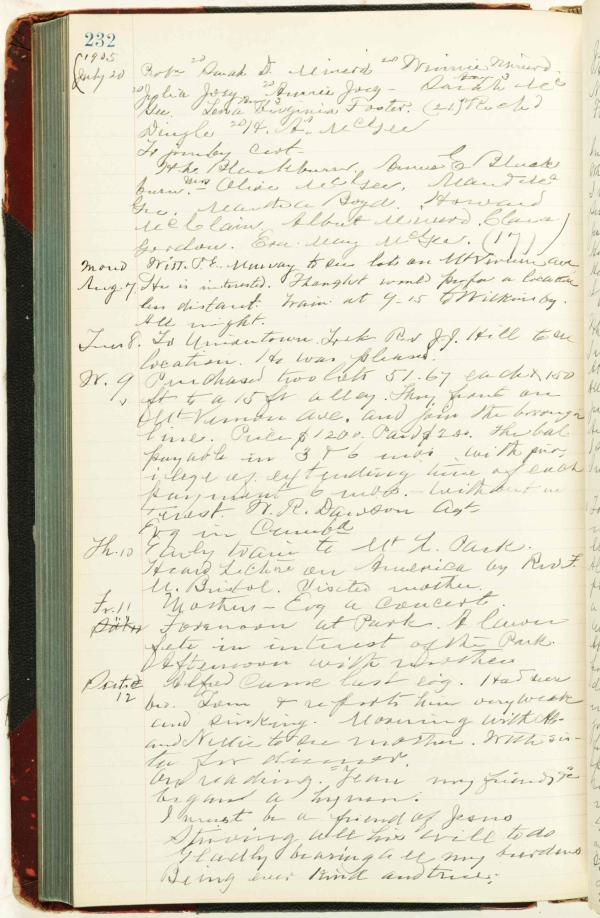 232
1905
July 20
Rob. 20 Sarah D. Minerd 20 Winnie Minerd.
20 Julia Joey 22 Annie Joey - Sarah Mc
Gee. Lena Virginia Foster. (21)
Dingle 20/4. A. McGee
To join by cert-
Blackburn, Annie E. Black
burn. Mrs Olive McGee, Maud Mc
Gee. Martha Boyd. Howard
McClain. Albert Minerd. Clara
Gordon. Eva May McGee. (17)
Mond With P.E. Murray to see lots on Mt Vernon ave
Aug. 7 He is interested. Thought would prefer a location
less distant. Train at 9-15 to Wilkinsbg.
All night.
Tues 8. To Uniontown. Took Rev J.J. Hill to see
location. He was pleased.
W. 9 Purchased two lots 51.67 each x 150
ft to a 15 ft alley. They front on
Mt Vernon Ave. and join the borough
line. Price $1200. Paid $200. The bal
payable in 3 & 6 mos. with priv-
ilege of extending time of each
payment 6 mos. - without in
terest W. R. Dawson Agt
Evg in Cumbd
Th. 10 Early train to Mt L. Park.
Heard lecture on America by Rev F.
M. Bristol. Visited mother.
Fr. 11 Mothers - Evg a concert.
Forenoon at Park. A lawn
fete in interest of the Park.
Afternoon with mother
12 Alfred came last evg. Had seen
bro. Tom & reports him very weak
and sinking. Morning with
and Nellie to see mother. With sis-
ter for dinner.
On reading. "Ye are my friends" &c
began a hymn:
I must be a friend of Jesus
Striving all his will to do
Gladly bearing all my burdens
Being ever kind and true;